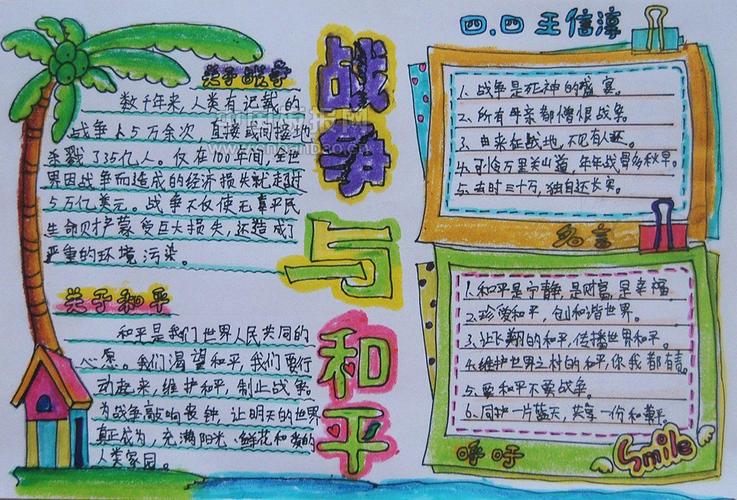 四.四 王信淳
战争
与
和平
关于战争
数千年来,人类有记载的
战争占5万余次 直接或间接地
杀戮了35亿人。仅在100年间,全世
界因战争而造成的经济损失就超过
5万亿美元。战争不仅使无辜平民
生命财产蒙受巨大损失,还造成了
严重的环境污染。
关于和平
和平是我们世界人民共同的
心愿。我们渴望和平,我们要行
动起来,维护和平,制止战争。
为战争敲响丧钟,让明天的世界
真正成为,充满阳光、鲜花和爱的
人类家园。
1. 战争是死神的盛宴。
2. 所有母亲都憎恨战争。
3. 由来征战地,不见有人还。
4. 可怜万里关山道,年年战骨多秋草。
5. 去时三十万,独自还长安。
名言
1. 和平是宁静,是财富,是幸福
2. 珍爱和平,创和谐世界。
3. 让飞翔的和平,传播世界和平。
4. 维护世界之村的和平,你我都有责。
5. 要和平不要战争。
6. 同护一片蓝天,共享一份和平
呼吁
Smile